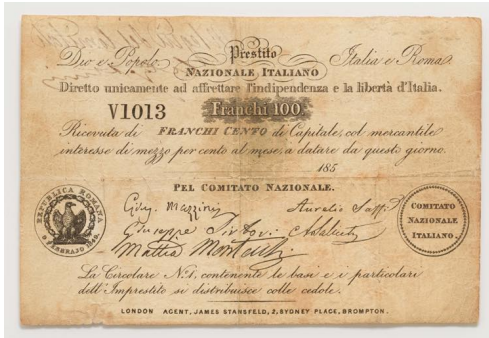 Dio e Popolo. Prestito Italia e Roma.
NAZIONALE ITALIANO
Diretto unicamente ad affrettare l'indipendenza e la libertà d'Italia.
V1013 Franchi 100.
Ricevuta di FRANCHI CENTO di Capitale, col mercantile
interesse di mezzo per cento al mese, a datare da questo giorno.
185
PEL COMITATO NAZIONALE.
REPUBLICA ROMANA
9 FEBBRAJO 1849.
Gius. Mazzini Aurelio Saffi
Giuseppe Sirtori
Mattia Montecchi
COMITATO
NAZIONALE
ITALIANO.
La Circolare No. 1, contenente le basi e i particolari
dell'Imprestito si distribuisce colle cedole.
LONDON AGENT, JAMES STANSFELD, 2, SYDNEY PLACE, BROMPTON.